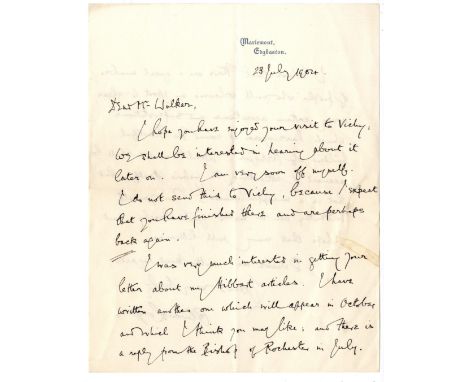 Mariemont,
Edgbaston.
28 July 1904
Dear Mr Walker,
I hope you have enjoyed your visit to Vichy,
we shall be interested in hearing about it
later on. I am very soon off myself.
I do not send this to Vichy, because I expect
that you have finished there and are perhaps
back again.
I was very much interested in getting your
letter about my Hibbert articles. I have
written another one which will appear in October
and which I think you may like; and there is
a reply from the Bishop of Rochester in July.